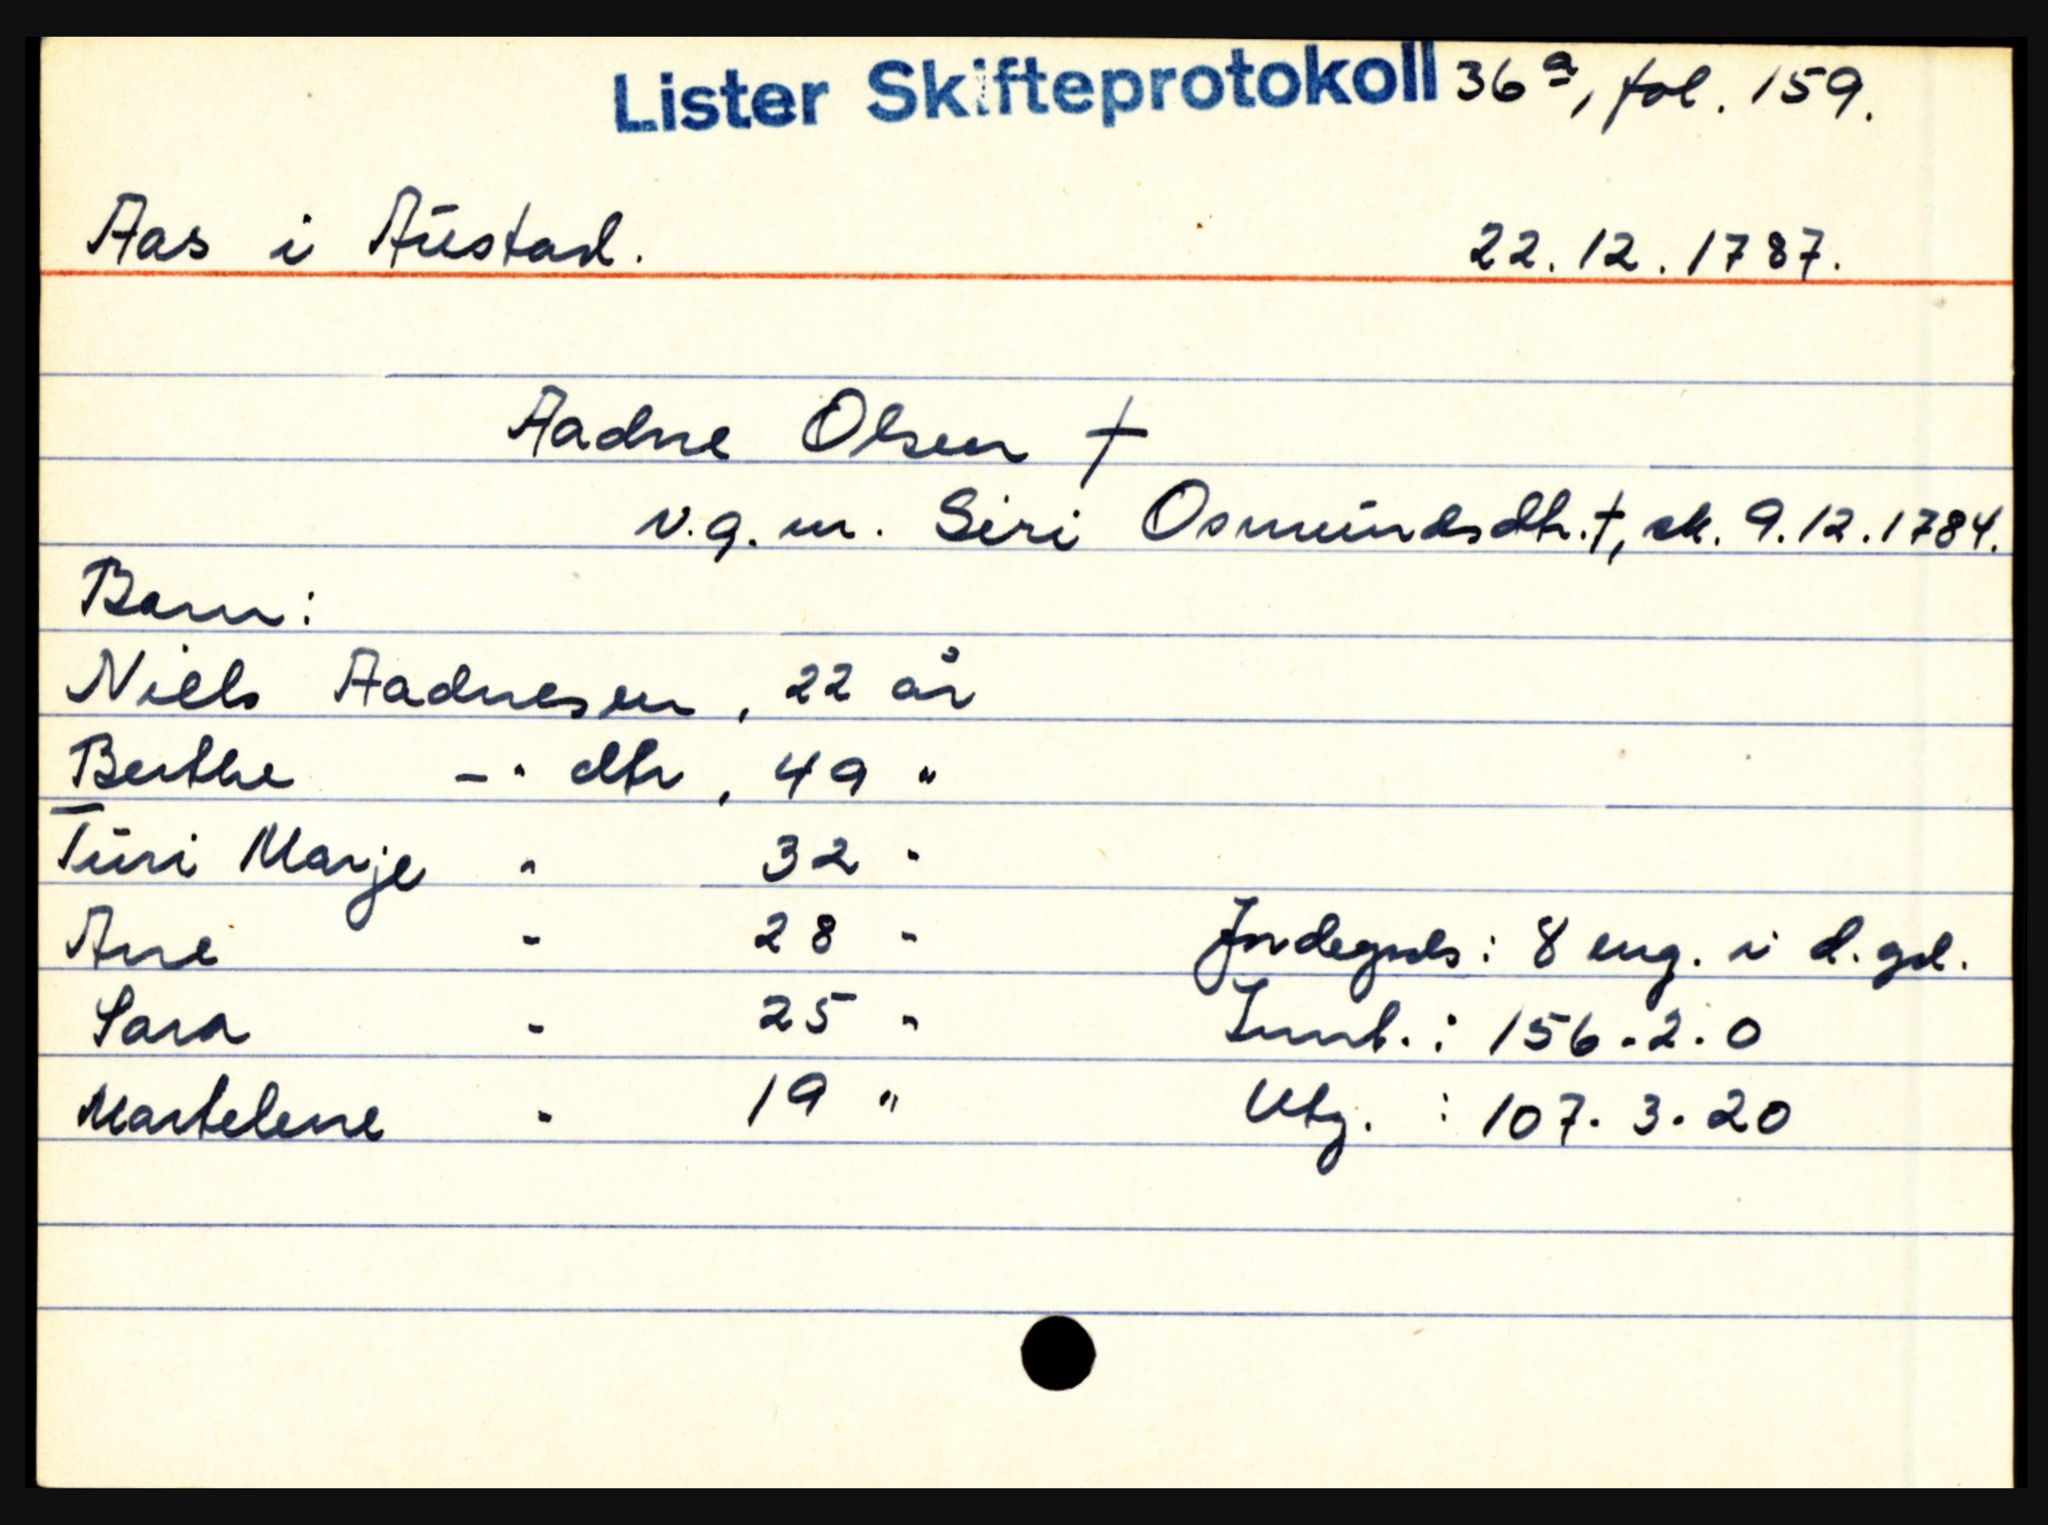 Lister Skifteprotokoll 36ª, fol. 159.
Aas i Austad. 22.12.1787.
Aadne Olsen †
v.g.m. Siri Osmundsdtr. †, sk. 9.12.1784.
Barn:
Niels Aadnesen, 22 år
Berthe -"- dtr, 49 "
Turi Marje " 32 "
Ane " 28 " Jordegods: 8 eng. i d. gd.
Sara " 25 " Innb.: 156-2-0
Martelene " 19 " Utg. : 107-3-20